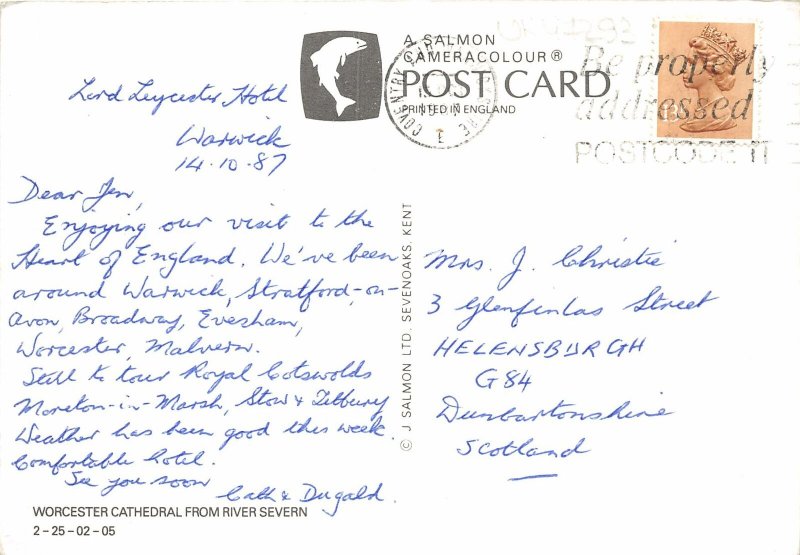 Lord Leycester Hotel
Warwick
14.10.87
Dear Jen,
Enjoying our visit to the
Heart of England. We've been
around Warwick, Stratford-on-
Avon, Broadway, Evesham,
Worcester, Malvern.
Still to tour Royal Cotswolds
Moreton-in-Marsh, Stow & Tetbury
Weather has been good this week.
Comfortable hotel.
See you soon
Cath & Dugald.
WORCESTER CATHEDRAL FROM RIVER SEVERN
2-25-02-05
A. SALMON
CAMERACOLOUR ®
POST CARD
PRINTED IN ENGLAND
© J SALMON LTD. SEVENOAKS. KENT
COVENTRY
Be properly
addressed
POSTCODE IT
Mrs. J. Christie
3 Glenfinlas Street
HELENSBURGH
G84
Dunbartonshire
Scotland